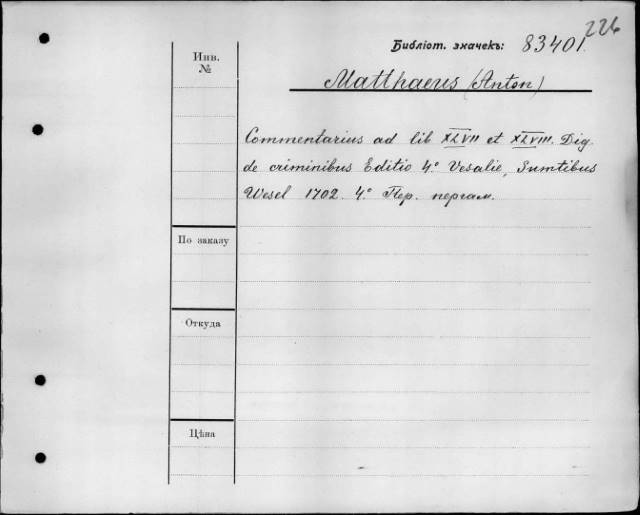 226
Библіот. значекъ: 83401.
Инв.
№
Matthaeus (Anton)
Commentarius ad lib XLVII et XLVIII. Dig.
de criminibus Editio 4° Vesalie, Sumtibus
Wesel 1702. 4° Пер. пергам.
По заказу
Откуда
Цѣна